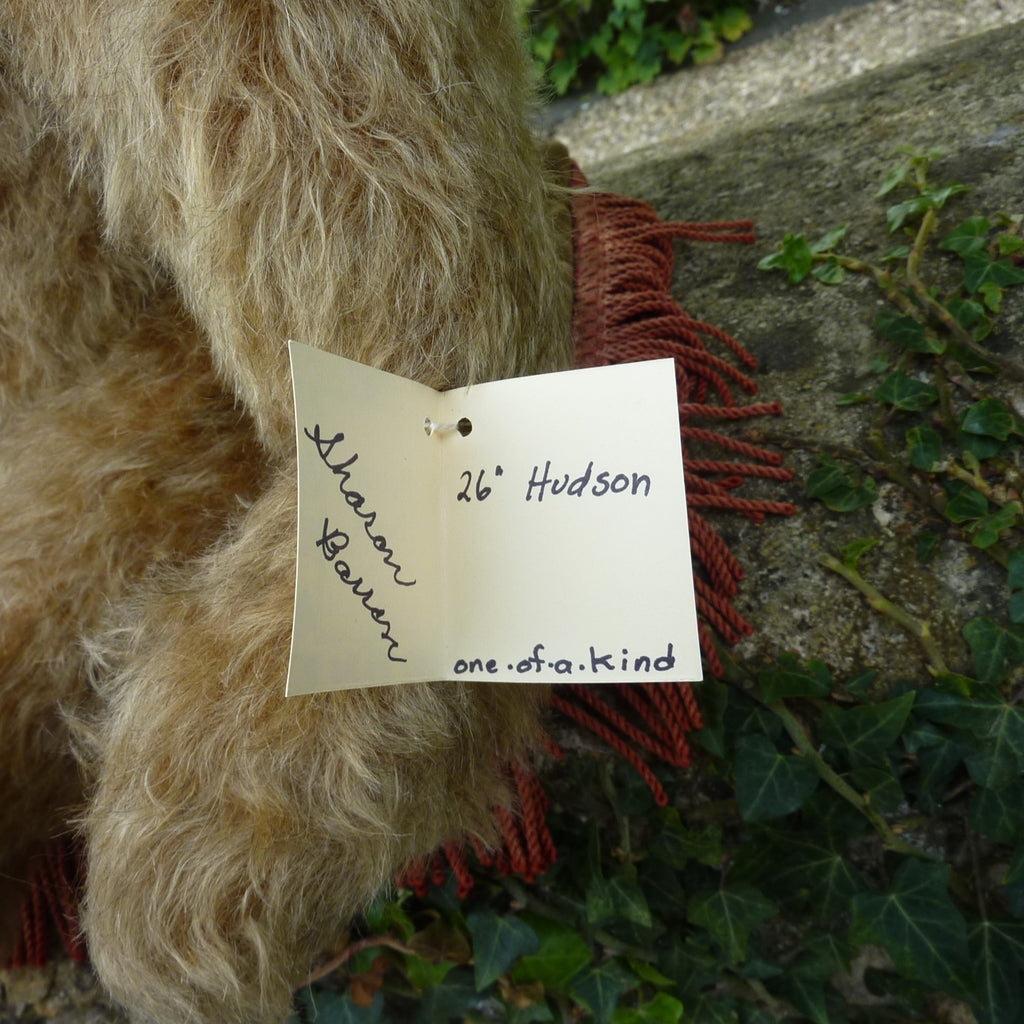 Sharon
Barron
26" Hudson
one.of.a.kind